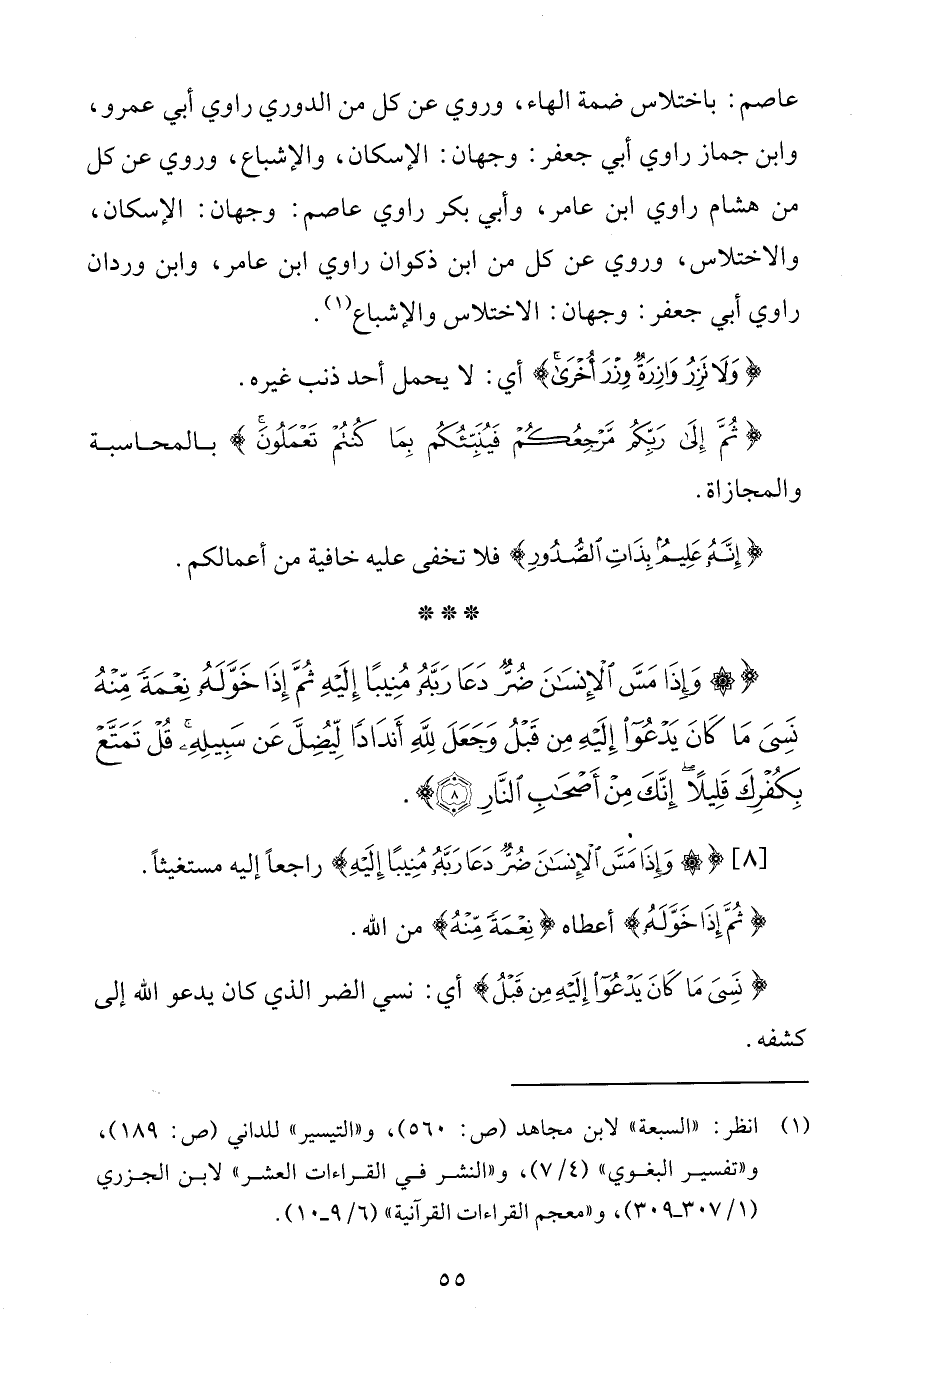 عاصم: باختلاس ضمة الهاء، وروي عن كل من الدوري راوي أبي عمرو،
وابن جماز راوي أبي جعفر: وجهان: الإسكان، والإشباع، وروي عن كل
من هشام راوي ابن عامر، وأبي بكر راوي عاصم: وجهان: الإسكان،
والاختلاس، وروي عن كل من ابن ذكوان راوي ابن عامر، وابن وردان
راوي أبي جعفر: وجهان: الاختلاس والإشباع(١).
﴿وَلَا تَزِرُ وَازِرَةٌ وِزْرَ أُخْرَىٰ ۚ﴾ أي: لا يحمل أحد ذنب غيره.
﴿ثُمَّ إِلَىٰ رَبِّكُمْ مَرْجِعُكُمْ فَيُنَبِّئُكُمْ بِمَا كُنْتُمْ تَعْمَلُونَ ۚ﴾ بالمحاسبة
والمجازاة.
﴿إِنَّهُ عَلِيمٌ بِذَاتِ الصُّدُورِ﴾ فلا تخفى عليه خافية من أعمالكم.
* * *
﴿۞ وَإِذَا مَسَّ الْإِنْسَانَ ضُرٌّ دَعَا رَبَّهُ مُنِيبًا إِلَيْهِ ثُمَّ إِذَا خَوَّلَهُ نِعْمَةً مِنْهُ
نَسِيَ مَا كَانَ يَدْعُو إِلَيْهِ مِنْ قَبْلُ وَجَعَلَ لِلَّهِ أَنْدَادًا لِيُضِلَّ عَنْ سَبِيلِهِ ۚ قُلْ تَمَتَّعْ
بِكُفْرِكَ قَلِيلًا ۖ إِنَّكَ مِنْ أَصْحَابِ النَّارِ ٨﴾.
[٨] ﴿۞ وَإِذَا مَسَّ الْإِنْسَانَ ضُرٌّ دَعَا رَبَّهُ مُنِيبًا إِلَيْهِ﴾ راجعاً إليه مستغيثاً.
﴿ثُمَّ إِذَا خَوَّلَهُ﴾ أعطاه ﴿نِعْمَةً مِنْهُ﴾ من الله.
﴿نَسِيَ مَا كَانَ يَدْعُو إِلَيْهِ مِنْ قَبْلُ﴾ أي: نسي الضر الذي كان يدعو الله إلى
كشفه.
(١) انظر: «السبعة» لابن مجاهد (ص: ٥٦٠)، و«التيسير» للداني (ص: ١٨٩)،
و«تفسير البغوي» (٤/ ٧)، و«النشر في القراءات العشر» لابن الجزري
(١/ ٣٠٧ـ٣٠٩)، و«معجم القراءات القرآنية» (٦/ ٩ـ١٠).
٥٥